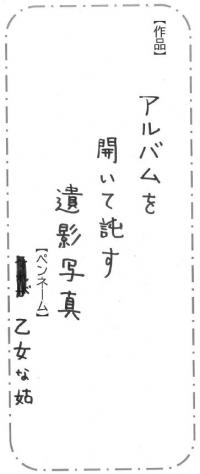 【作品】
アルバムを
開いて託す
遺影写真
【ペンネーム】
乙女な姑